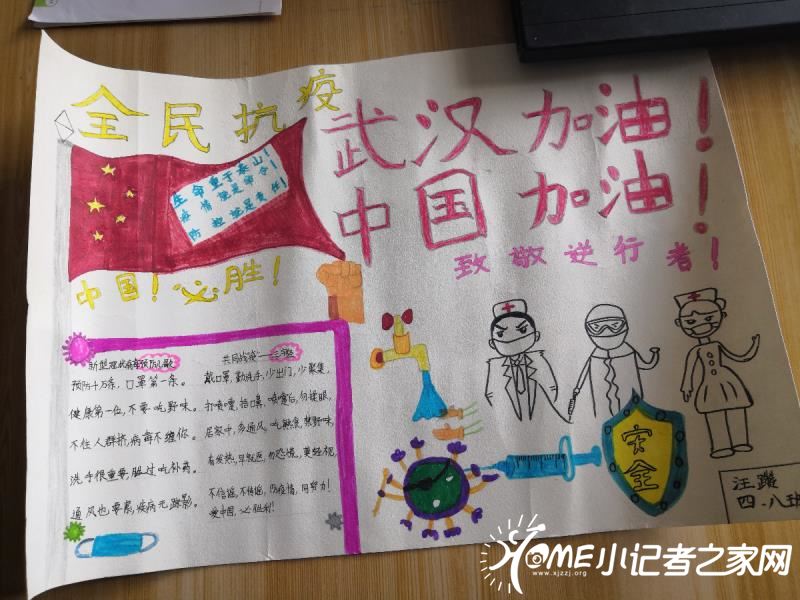 全民抗疫
武汉加油！
中国加油！
致敬逆行者！
生命重于泰山！
疫情就是命令！
防控就是责任！
中国！必胜！
新型冠状病毒预防儿歌
预防千万条，口罩第一条。
健康第一位，不要吃野味。
不住人群挤，病毒不缠你。
洗手很重要，胜过吃补药。
通风也要熏，疾病无踪影。
共同战"疫"——三字经
戴口罩，勤洗手，少出门，少聚集，
打喷嚏，捂口鼻，喷嚏后，勿揉眼，
居家中，多通风，吃熟食，禁野味，
若发热，早就医，勿恐慌，莫轻视，
不信谣，不传谣，防疫情，同努力！
爱中国，必胜利！
安全
四、八班
HOME小记者之家网
www.xjzzj.org